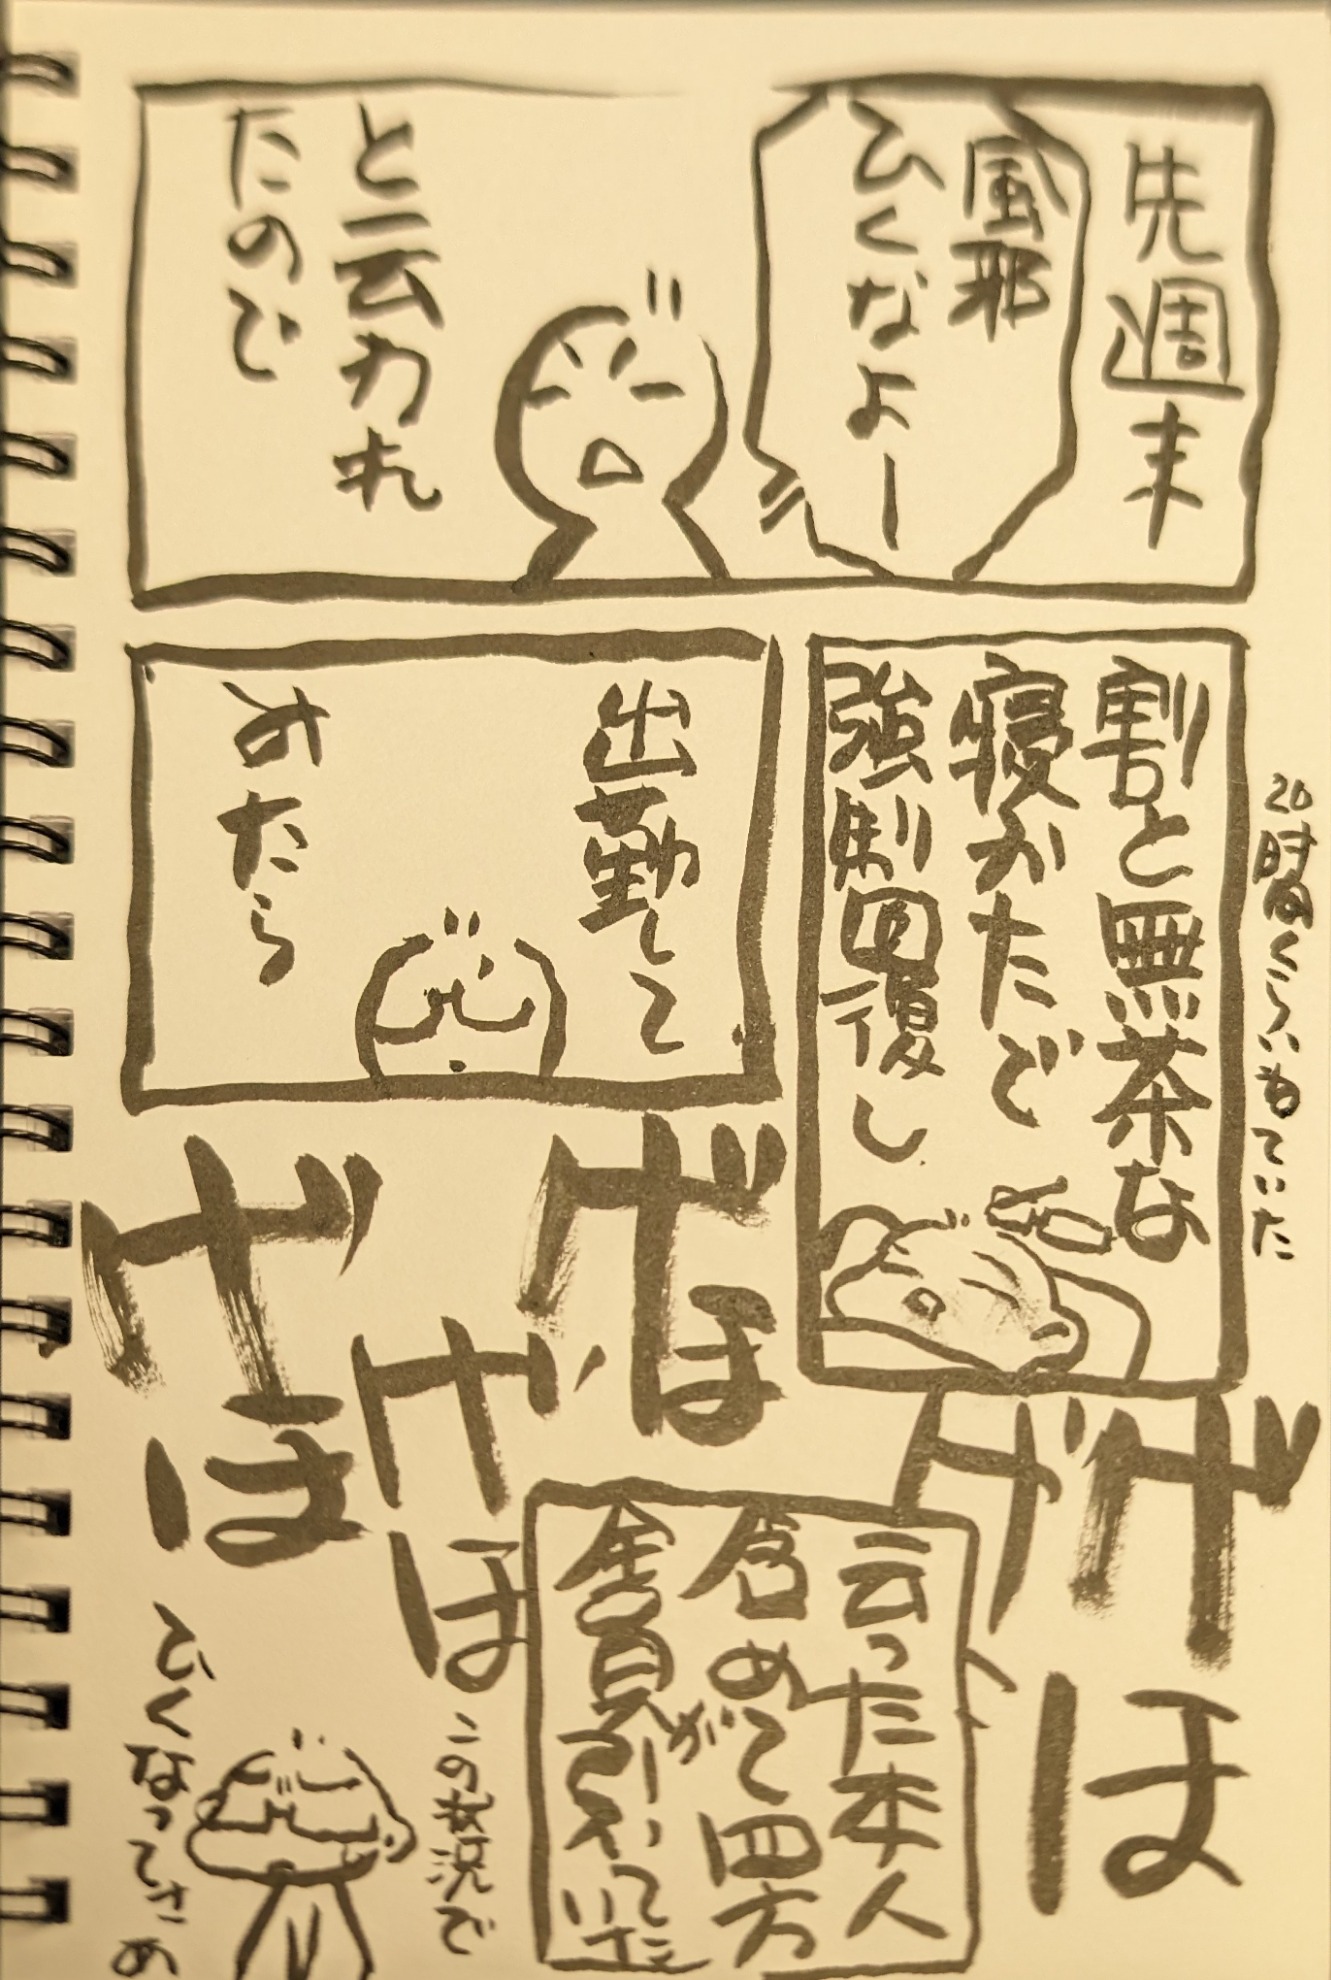 先週末
風邪
ひくなよー
と云われ
たので
20時間くらいねていた
割と無茶な
寝かたで
強制回復し
出勤して
みたら
げほ
げ
げほ
げほ
げほ
云った本人
含めて四方
全員が引いていた
この状況で
ひくなってさあ